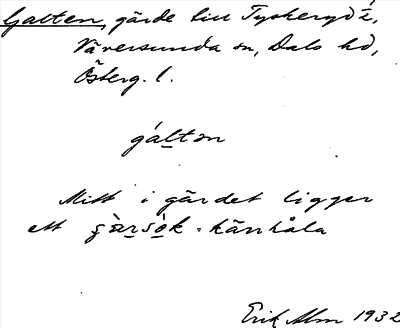 Galten, gärde till Tyskeryd
Väversunda sn, Dals hd,
Österg. l.
galton
Mitt i gärdet ligger
ett gårsök - kärrhåla
Erik Alm 1932